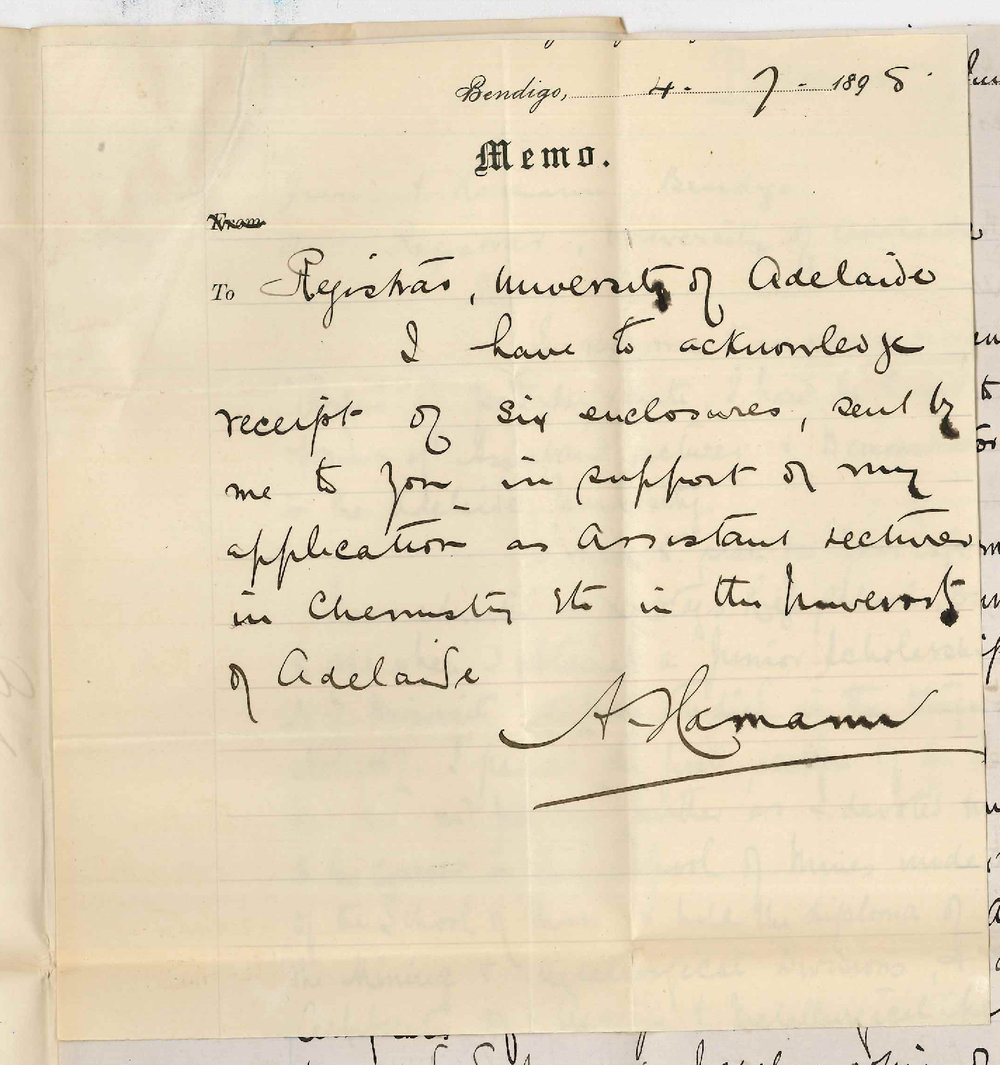 Bendigo, 4. 7. 1898.
Memo.
From
To Registrar, University of Adelaide
I have to acknowledge
receipt of six enclosures, sent by
me to you in support of my
application as Assistant Lecturer
in Chemistry etc in the University
of Adelaide
A. Hamann